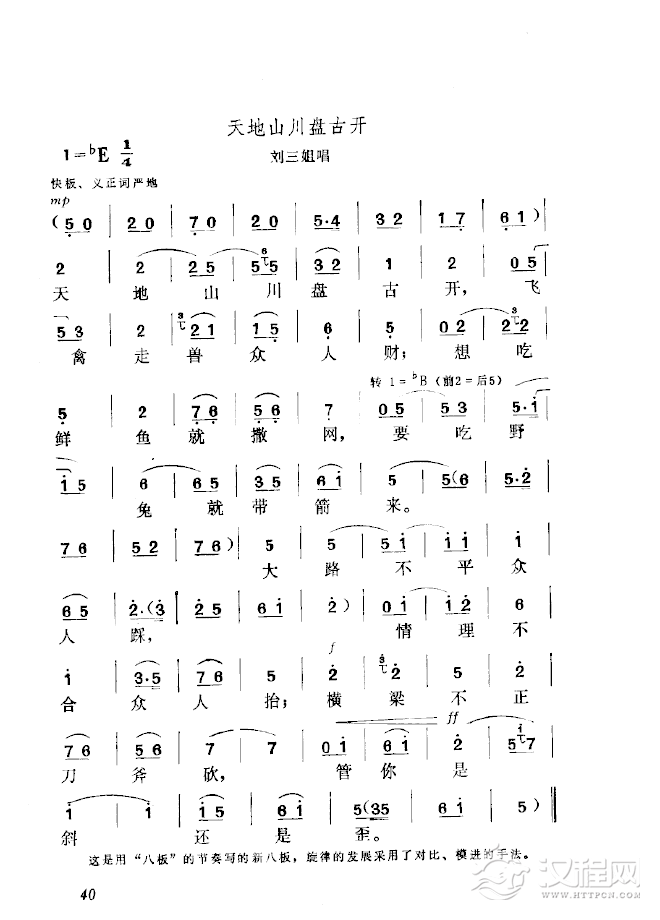 天地山川盘古开
1=♭E 1/4
刘三姐唱
快板、义正词严地
mp
(5 0 | 2 0 | 7 0 | 2 0 | 5·4 | 3 2 | 1 7 | 6 1) |
2 | 2 | 2 5 | 5 5 | (3 2 | 1 | 2 | 0 5 |
天 地 山 川 盘 古 开, 飞
5 3 | 2 | 2 1 | 1 5 | 6 | 5 | 0 2 | 2 2 |
禽 走 兽 众 人 财; 想 吃
转 1=♭B (前2=后5)
5 | 2 | 7 6 | 5 6 | 7 | 0 5 | 5 3 | 5·i |
鲜 鱼 就 撒 网, 要 吃 野
i 5 | 6 | 7 6 | 3 5 | 6 i | 5 | 5(6 | 5·2 |
兔 就 带 箭 来。
7 6 | 5 2 | 7 6) | 5 | 5 | 5 i | i i | 6 |
大 路 不 平 众
6 5 | 2·(3 | 2 5 | 6 i | 2) | 0 i | i 2 | 6 |
人 踩, 情 理 不
f
i | 3·5 | 7 6 | 5 | 2 | 2 | 2 | 5 |
合 众 人 抬; 横 梁 不 正
ff
7 6 | 5 6 | 7 | 7 | 0 i | 6 i | 2 | 5 7 |
刀 斧 砍, 管 你 是
i | i | i 5 | 6 i | 5(35 | 6 i | 5) ‖
斜 还 是 歪。
这是用“八板”的节奏写的新八板,旋律的发展采用了对比、模进的手法。
40
汉程网
WWW.HTTPCN.COM